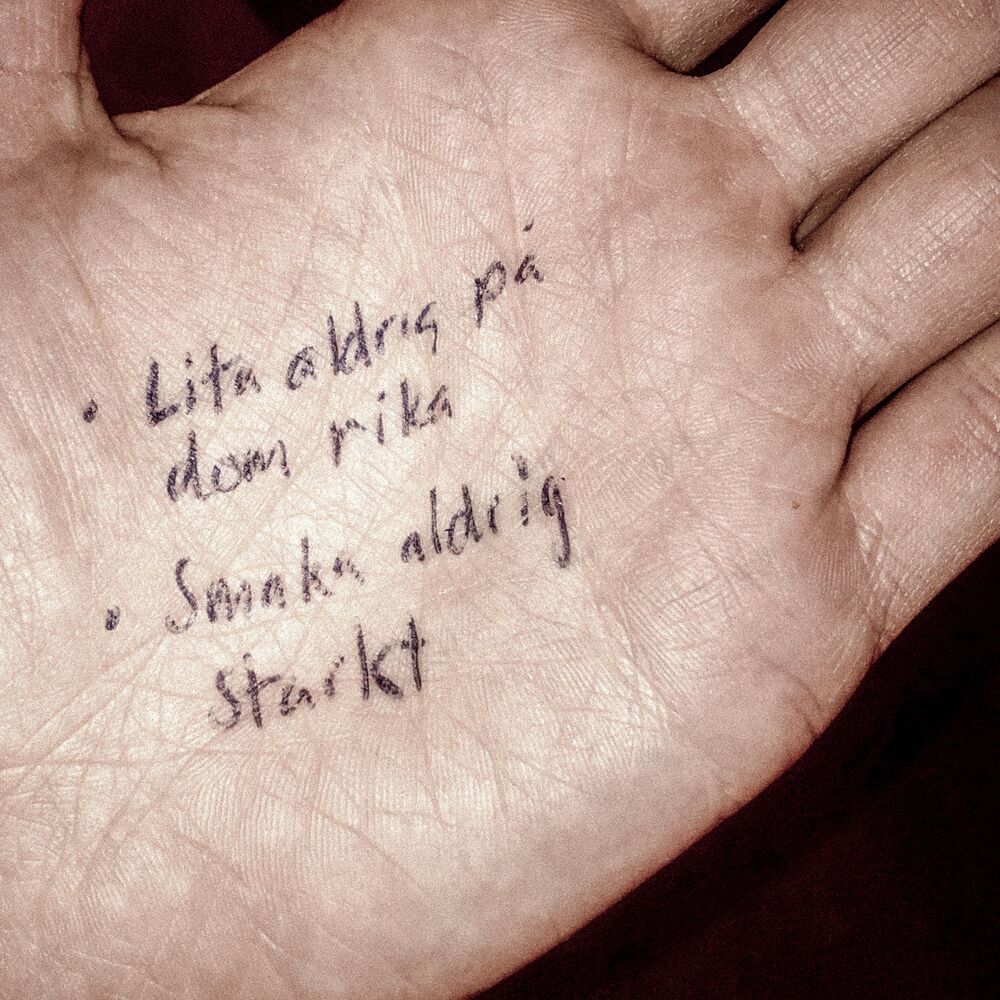 • Lita aldrig på
dom rika
• Smaka aldrig
starkt